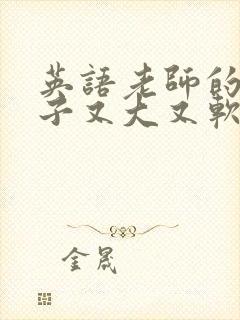 英語老師的
子又大又軟
金晟